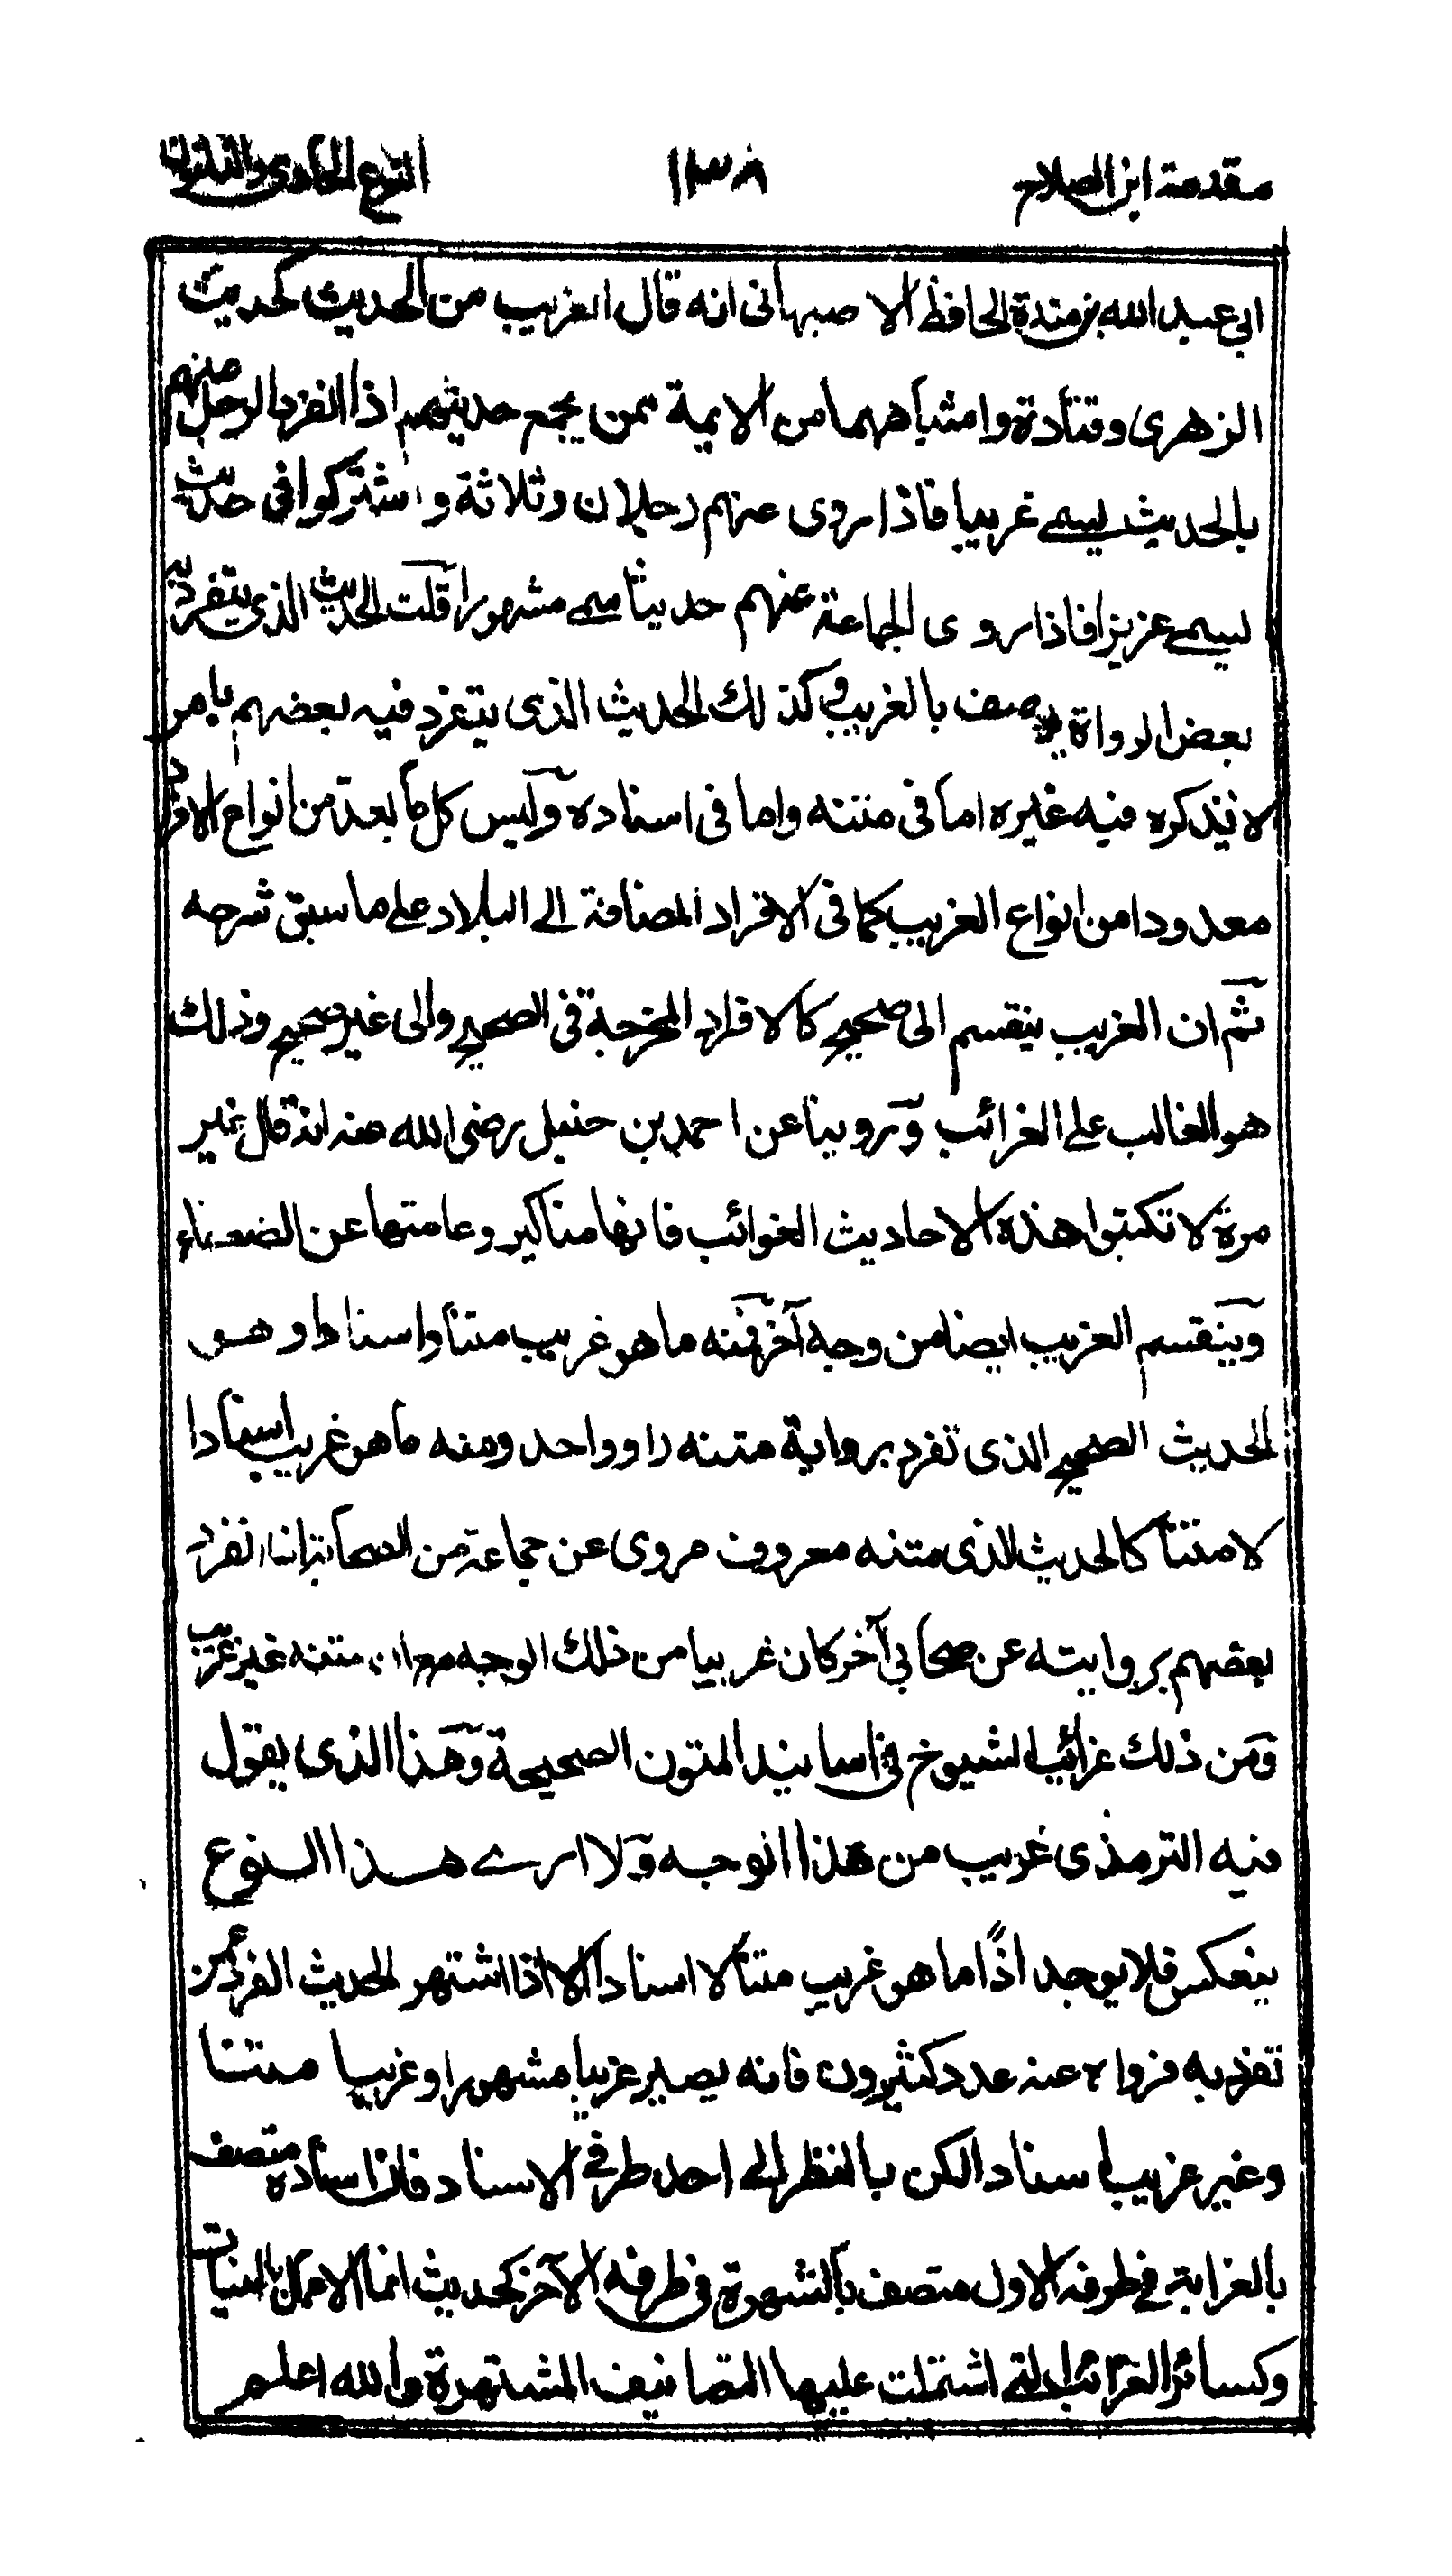 مقدمة ابن الصلاح ١٣٨ النوع الحادي والثلثون
ابي عبد الله بن مندة الحافظ الاصبهانى انه قال الغريب من الحديث كحديث
الزهرى وقتادة وامثباههما من الايمة ممن يجمع حديثهم اذا انفرد الرجل منهم
بالحديث يسمے غريبا فاذا روى عنهم رجلان وثلاثة واشتركوا فى حديث
يسمے عزيزا فاذا روى الجماعة عنهم حديثا سمے مشهورا قلت الحديث الذى يتفرد به
بعض الرواة يوصف بالغريب وكذلك الحديث الذى يتفرد فيه بعضهم بامر
لا يذكره فيه غيره اما فى متنه واما فى اسناده وليس كل ما يعد من انواع الافراد
معدودا من انواع الغريب كما فى الافراد المضافة الے البلاد علے ما سبق شرحه
ثم ان الغريب ينقسم الى صحيح كالافراد المخرجة فى الصحيح والى غير صحيح وذلك
هو الغالب علے الغرائب وروينا عن احمد بن حنبل رضى الله عنه انه قال غير
مرة لا تكتبوا هذه الاحاديث الغوائب فانها مناكير وعامتها عن الضعفاء
وينقسم الغريب ايضا من وجه آخر فمنه ما هو غريب متنا واسنادا وهو
الحديث الصحيح الذى تفرد برواية متنه راو واحد ومنه ما هو غريب اسنادا
لا متنا كالحديث الذى متنه معروف مروى عن جماعة من الصحابة اذا انفرد
بعضهم بروايته عن صحابي آخر كان غريبا من ذلك الوجه مع ان متنه غير غريب
ومن ذلك غرائب الشيوخ في اسانيد المتون الصحيحة وهذا الذى يقول
فيه الترمذى غريب من هذا الوجه ولا ارے هذا النوع
ينعكس فلا يوجد اذًا ما هو غريب متنا لا اسنادا الا اذا اشتهر الحديث الفرد عمن
تفرد به فرواه عنه عدد كثيرون فانه يصير غريبا مشهورا وغريبا متنا
وغير غريب اسنادا لكن بالنظر الے احد طرفي الاسناد فان اسناده متصف
بالغرابة في طرفه الاول متصف بالشهرة في طرفه الآخر كحديث انما الاعمال بالنيات
وكسائر الغرائب التے اشتملت عليها التصانيف المشتهرة والله اعلم